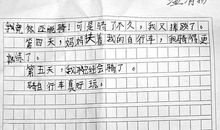 我竟然还能骑！可是骑了不久，我又摔跤了。
第四天，妈妈扶着我的自行车，我骑得更
熟练了。
第五天，我已经会骑了。
骑自行车真好玩。